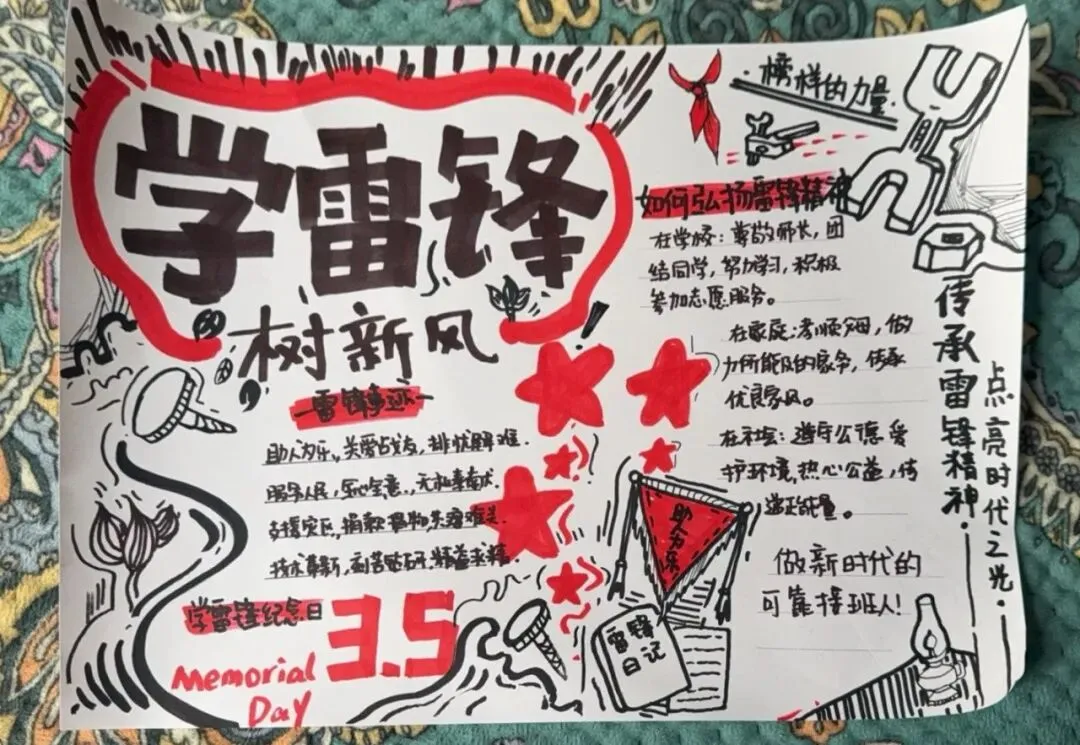 学雷锋
树新风
雷锋事迹
助人为乐,关爱战友,排忧解难.
服务人民,全心全意.,无私奉献.
支援灾区,捐款
技术革新,刻苦钻研.精益求精.
学雷锋纪念日
3.5
Memorial
Day
榜样的力量.
如何弘扬雷锋精神
在学校:尊敬师长,团
结同学,努力学习,积极
参加志愿服务。
在家庭:孝顺,做
力所能及的家务,传承
优良家风。
在社会:遵守公德 爱
护环境,热心公益,传
递正能量。
做新时代的
可靠接班人!
助人为乐
雷锋
日记
传承雷锋精神.
点亮时代之光.